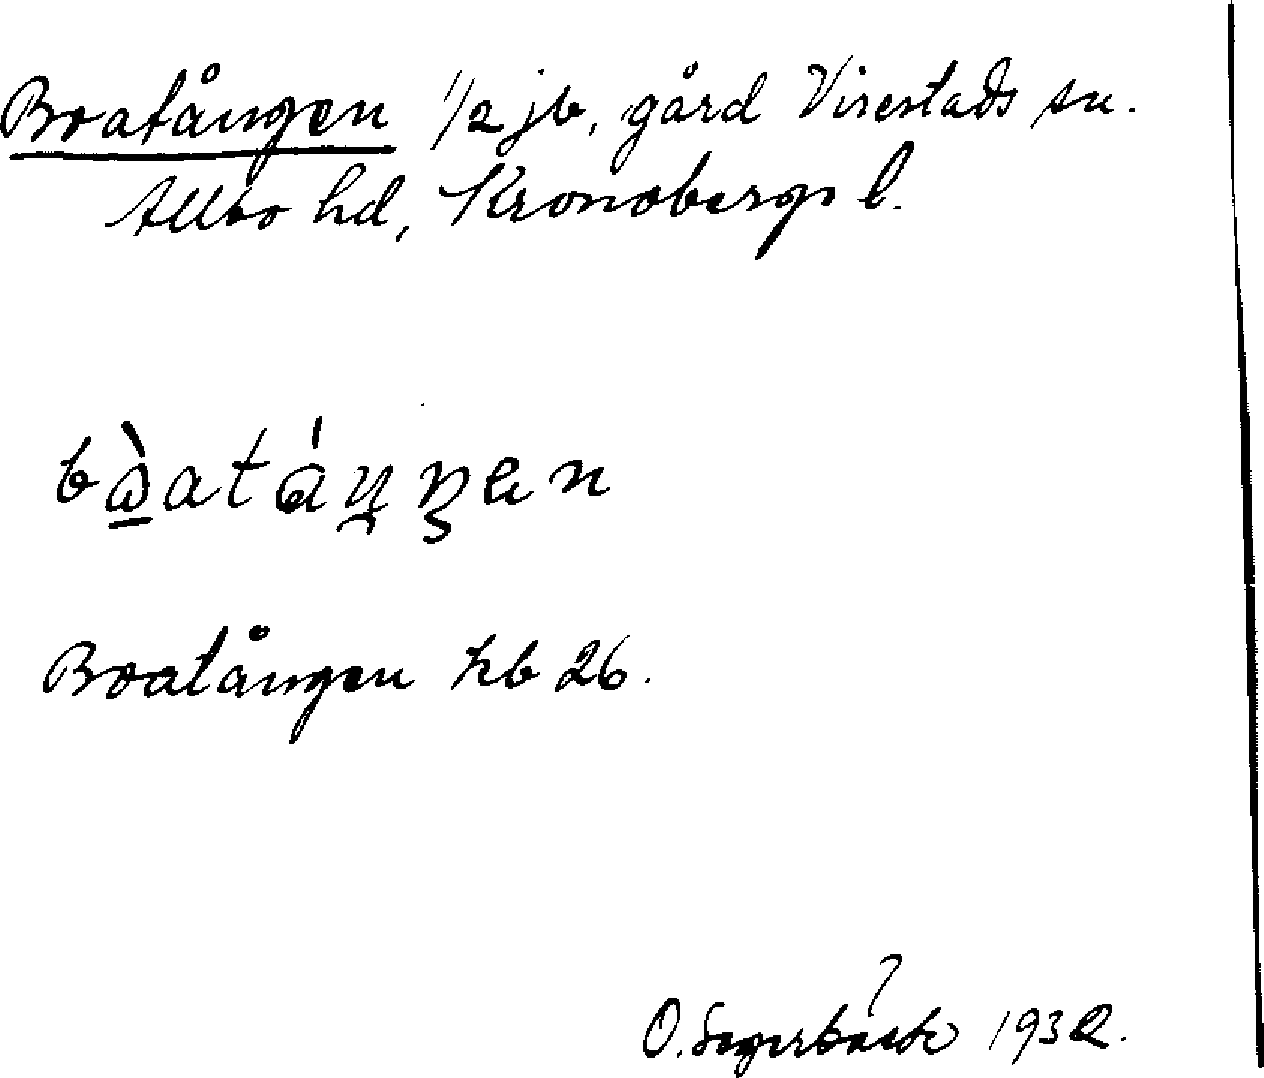 Boatången 1/2 jb, gård Virestads sn.
Allbo hd, Kronobergs l.
bòatáŋŋen
Boatången kb 26.
?
O. Segerbäck 1932.